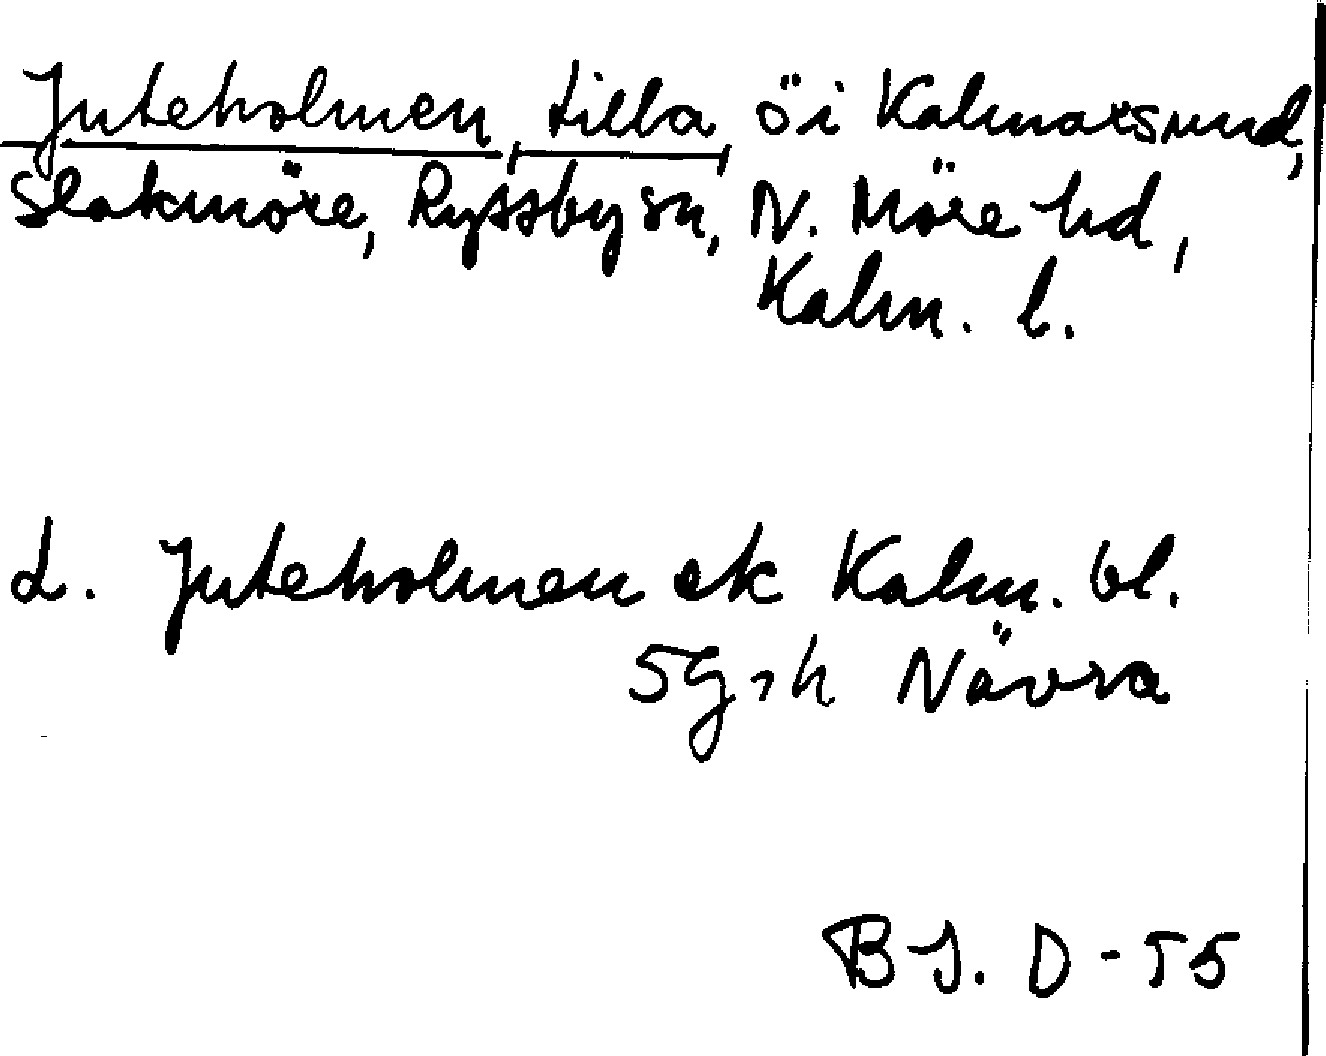 Juteholmen, Lilla ö i Kalmarsund,
Slakmöre, Ryssby sn, N. Möre hd,
Kalm. l.
L. Juteholmen ek Kalm. bl.
5g, h Nävra
B J. D-55